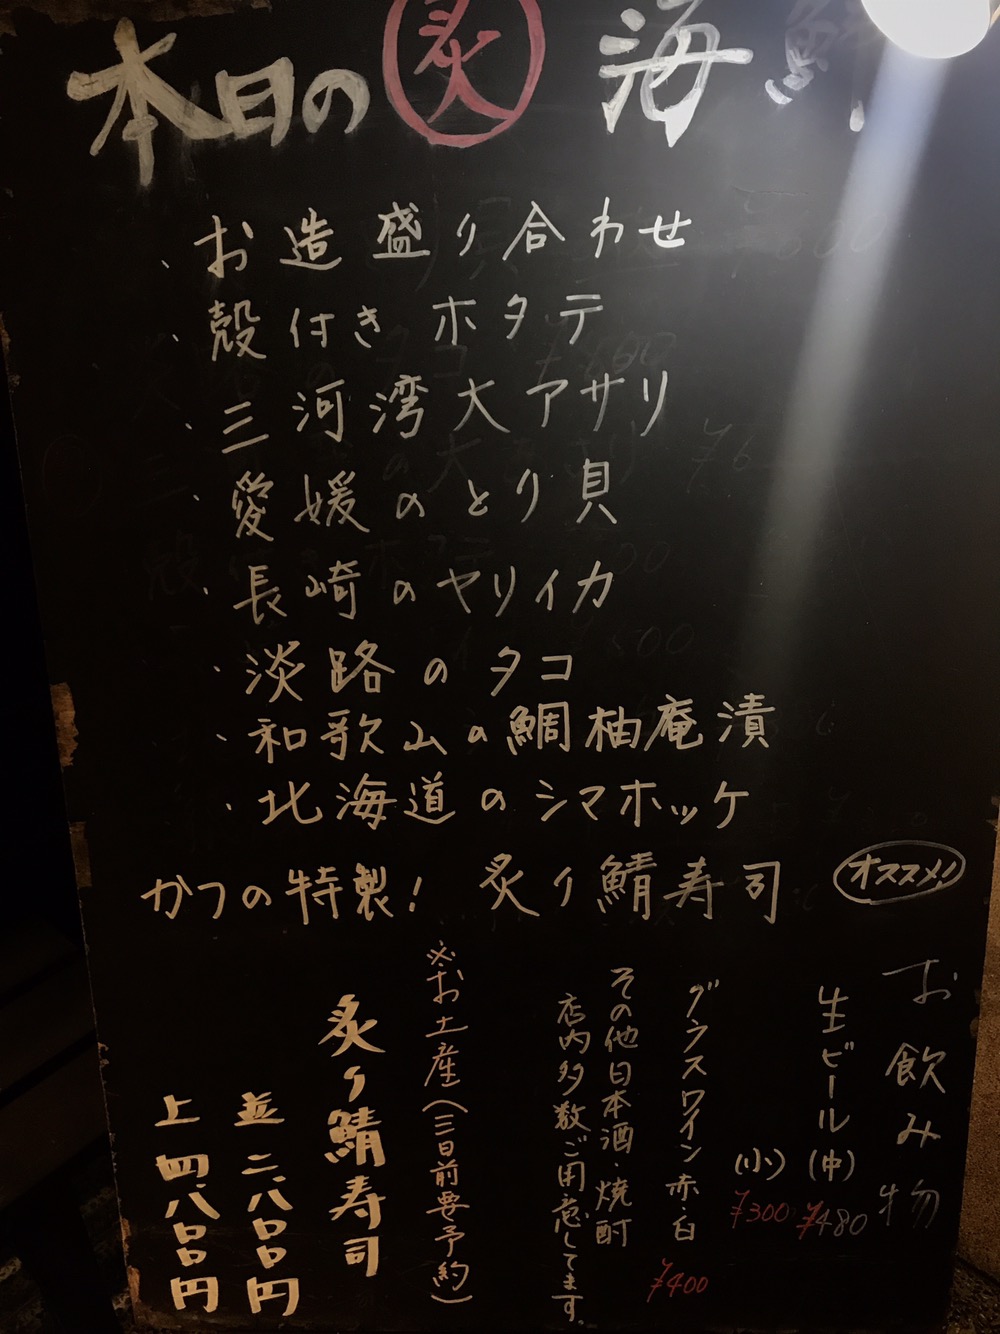 本日の炙海鮮
・お造盛り合わせ
・殻付きホタテ
・三河湾大アサリ
・愛媛のとり貝
・長崎のヤリイカ
・淡路のタコ
・和歌山の鯛柚庵漬
・北海道のシマホッケ
かつの特製! 炙り鯖寿司 オススメ!
お飲み物
生ビール(中) ¥480
(小) ¥300
グラスワイン赤・白 ¥400
その他日本酒・焼酎
店内多数ご用意してます。
※お土産(三日前要予約)
炙り鯖寿司
並 二、八〇〇円
上 四、八〇〇円